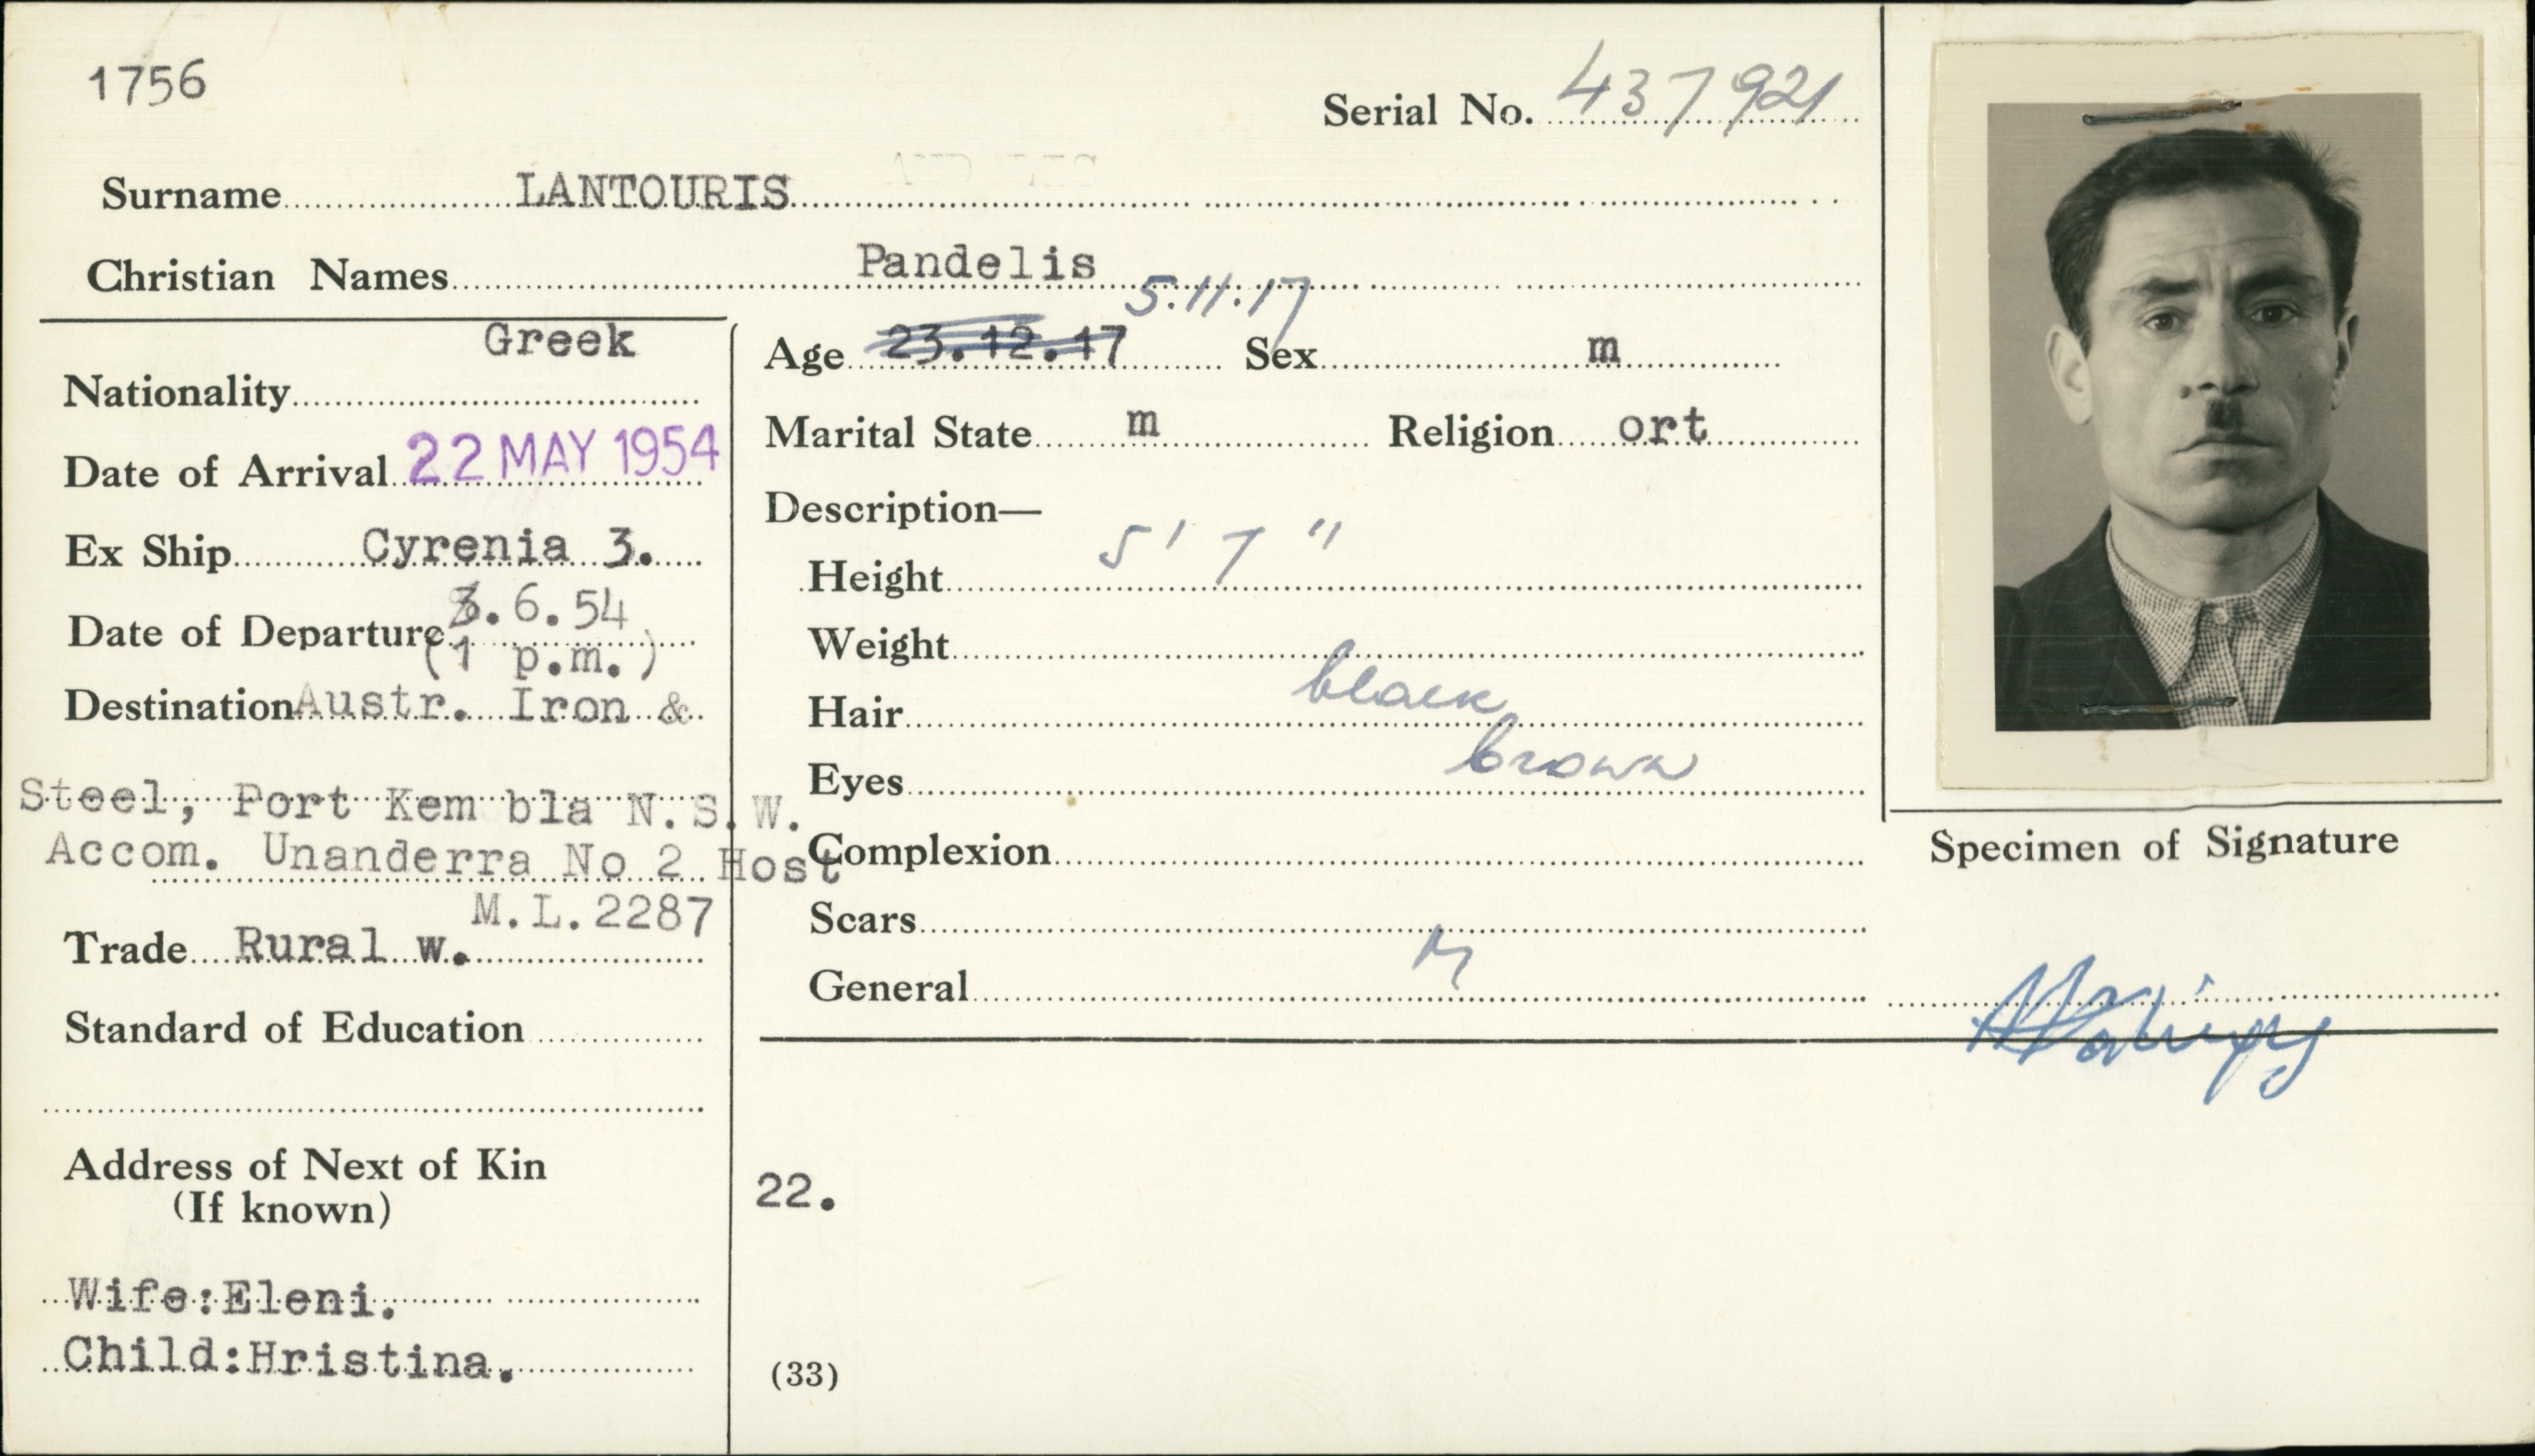 1756
Serial No. 437921
Surname LANTOURIS
Christian Names Pandelis
Greek
Nationality
Date of Arrival 22 MAY 1954
Ex Ship Cyrenia 3.
Date of Departure 3.6.54
(1 p.m.)
Destination Austr. Iron &
Steel, Port Kem bla N.S.W.
Accom. Unanderra No 2 Host
M.L.2287
Trade Rural w.
Standard of Education
Address of Next of Kin
(If known)
Wife:Eleni.
Child:Hristina.
5.11.17
Age 23.12.17 Sex m
Marital State m Religion ort
Description—
Height 5' 7"
Weight
Hair black
Eyes brown
Complexion
Scars
General M
22.
(33)
Specimen of Signature